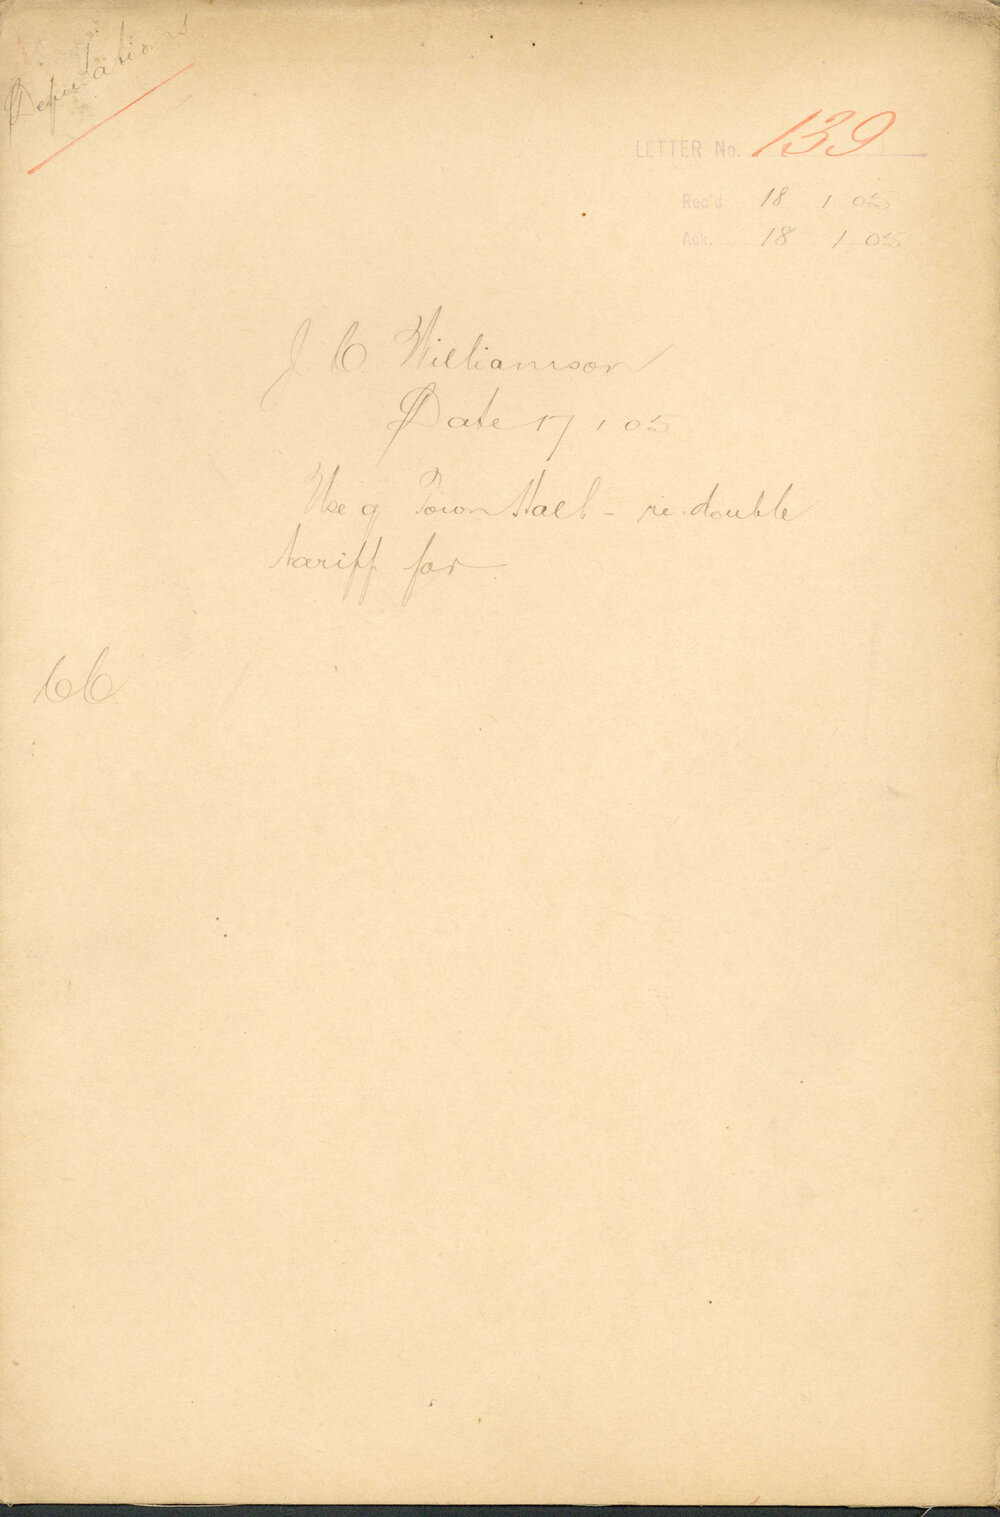 Deputations
LETTER No. 139
Rec'd 18 1 05
Ack. 18 1 05
J C Williamson
Date 17 1 05
Use of Town Hall - re double
tariff for
CC